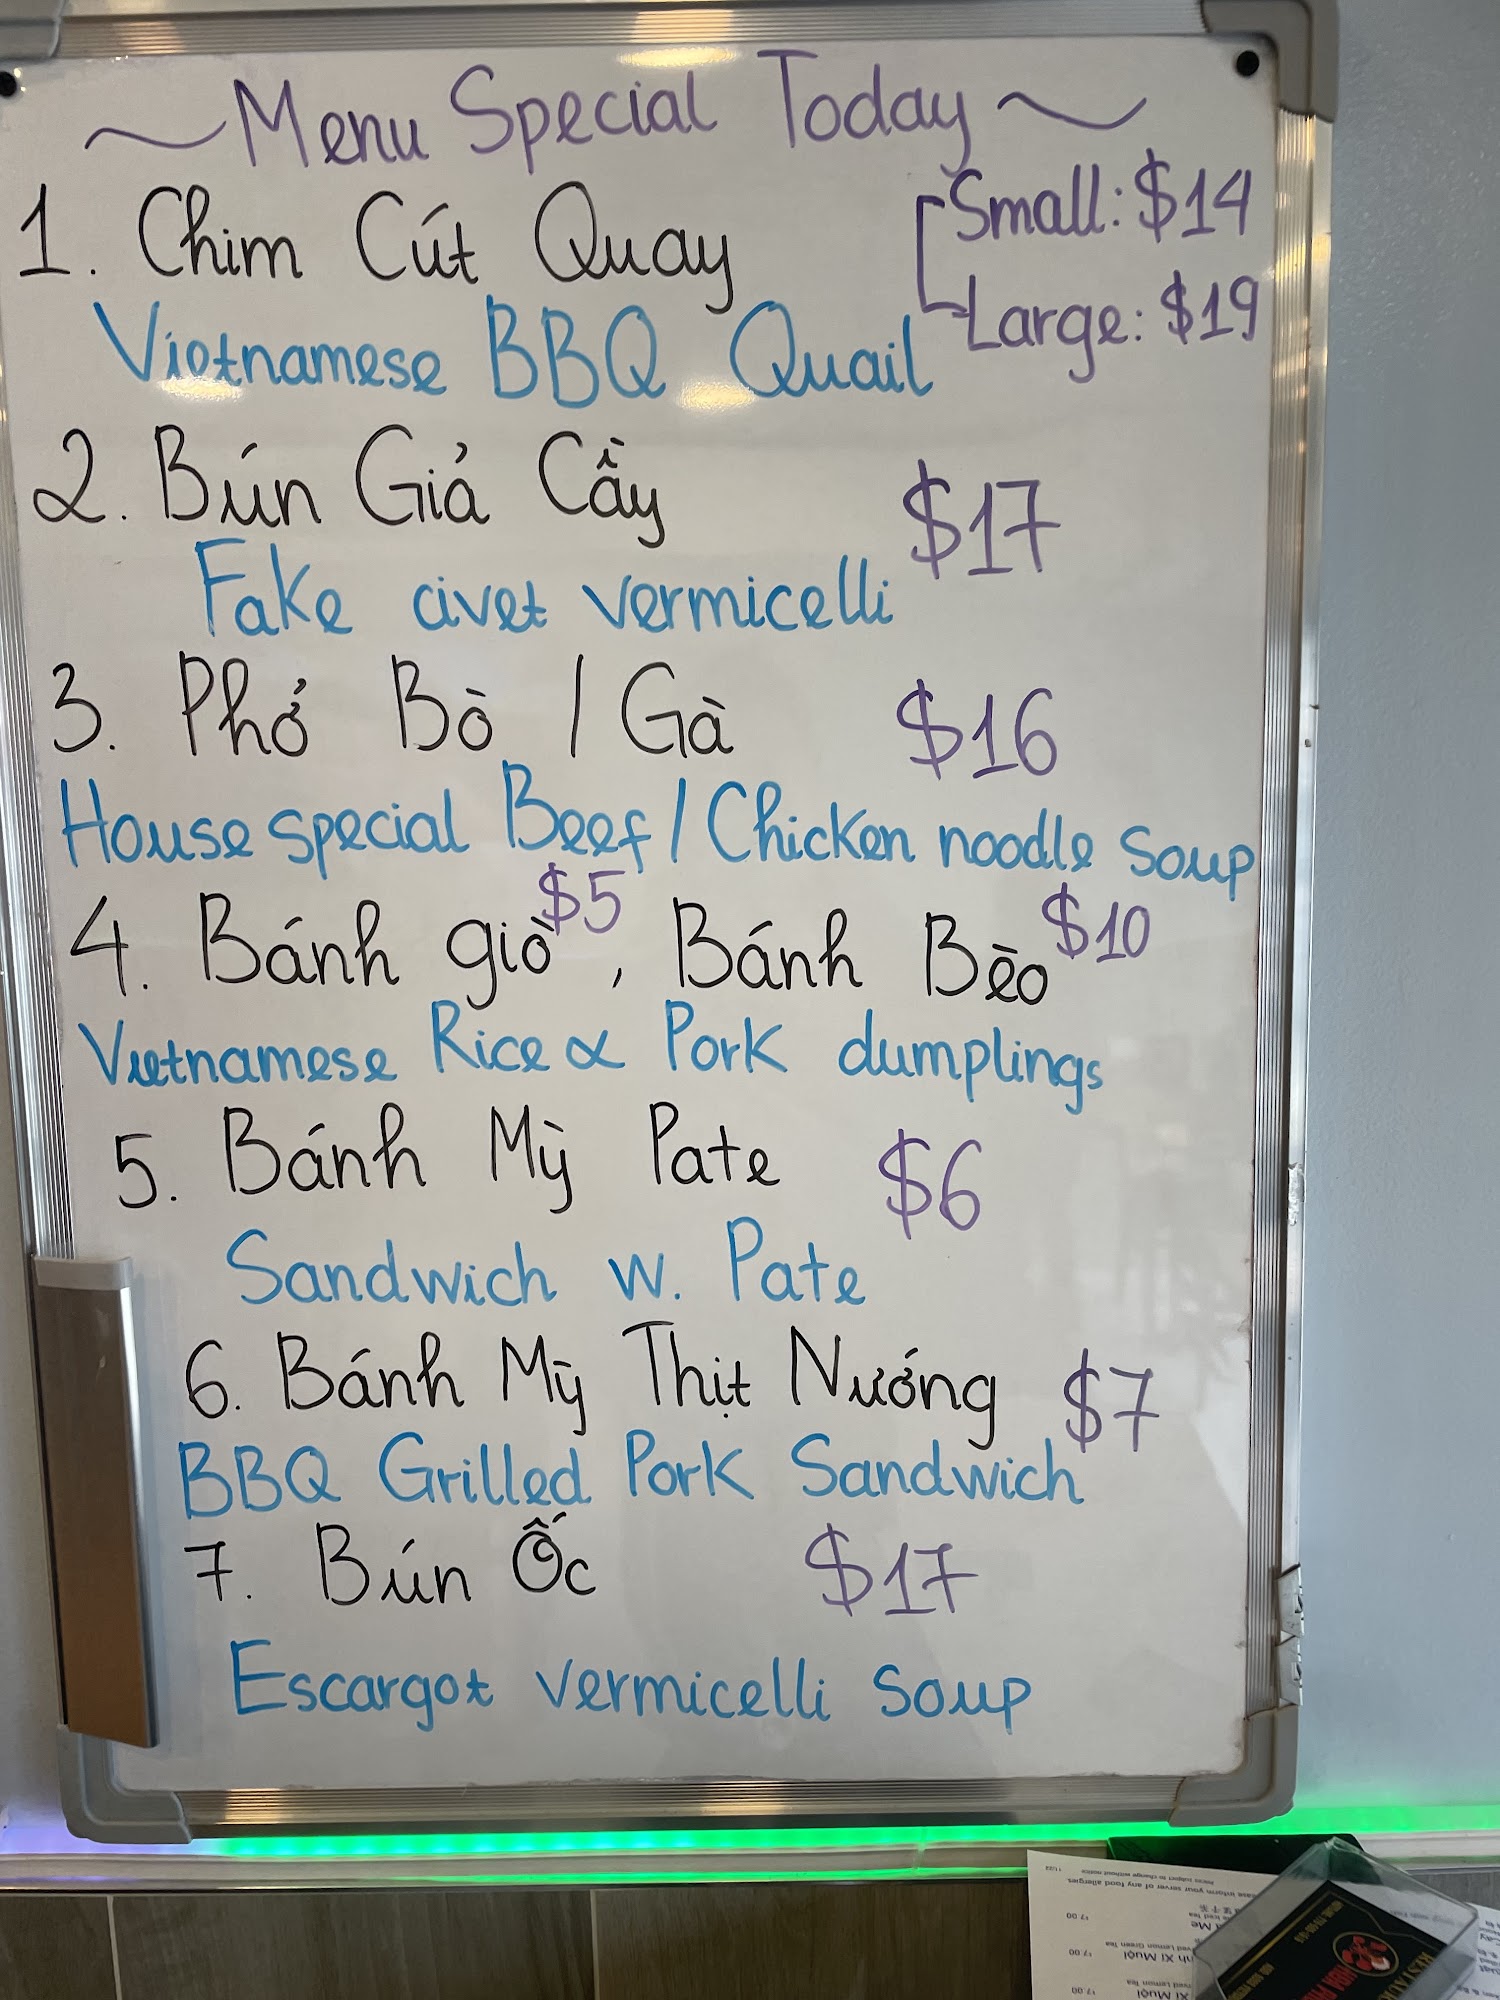 ~ Menu Special Today ~
1. Chim Cút Quay
Small: $14
Large: $19
Vietnamese BBQ Quail
2. Bún Giả Cầy $17
Fake civet vermicelli
3. Phở Bò / Gà $16
House special Beef / Chicken noodle Soup
4. Bánh giò $5, Bánh Bèo $10
Vietnamese Rice & Pork dumplings
5. Bánh Mỳ Pate $6
Sandwich w. Pate
6. Bánh Mỳ Thịt Nướng $7
BBQ Grilled Pork Sandwich
7. Bún Ốc $17
Escargot vermicelli soup
17.00
17.00
Xí Muội
17.00